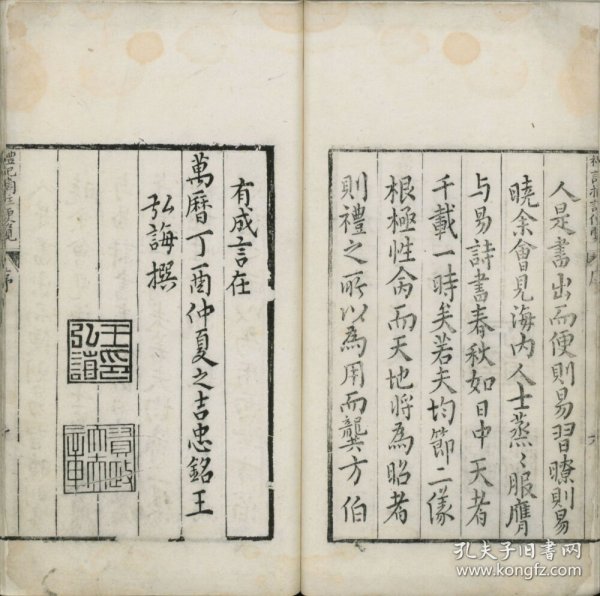 人是書出而便則易習暸則易
曉余會見海內人士蒸々服膺
与易詩書春秋如日中天者
千載一時矣若夫均節二儀
根極性命而天地將為昭者
則禮之所以為用而龔方伯
有成言在
萬曆丁酉仲夏之吉忠銘王
弘誨撰
王印弘誨
序
孔夫子旧书网
www.kongfz.com